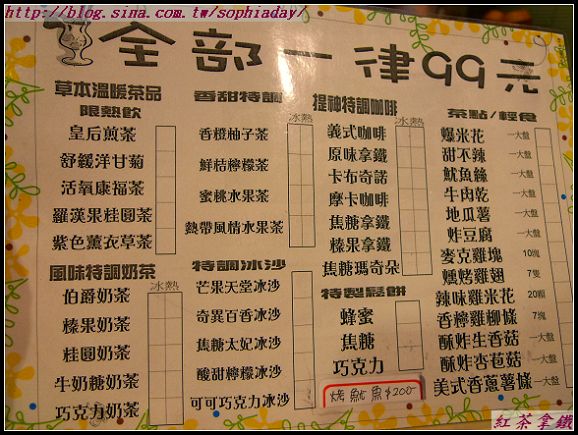 http://blog.sina.com.tw/sophiaday/
全部一律99元
草本溫暖茶品
限熱飲
皇后煎茶
舒緩洋甘菊
活氧康福茶
羅漢果桂圓茶
紫色薰衣草茶
風味特調奶茶
冰熱
伯爵奶茶
榛果奶茶
桂圓奶茶
牛奶糖奶茶
巧克力奶茶
香甜特調
冰熱
香橙柚子茶
鮮桔檸檬茶
蜜桃水果茶
熱帶風情水果茶
特調冰沙
芒果天堂冰沙
奇異百香冰沙
焦糖太妃冰沙
酸甜檸檬冰沙
可可巧克力冰沙
提神特調咖啡
冰熱
義式咖啡
原味拿鐵
卡布奇諾
摩卡咖啡
焦糖拿鐵
榛果拿鐵
焦糖瑪奇朵
特製鬆餅
蜂蜜
焦糖
巧克力
烤魷魚$200-
茶點/輕食
爆米花 一大盤
甜不辣 一大盤
魷魚絲 一大盤
牛肉乾 一大盤
地瓜薯 一大盤
炸豆腐 一大盤
麥克雞塊 10塊
燻烤雞翅 7隻
辣味雞米花 20顆
香檸雞柳條 7塊
酥炸生香菇 一大盤
酥炸杏苞菇 一大盤
美式香蔥薯條 一大盤
紅茶拿鐵